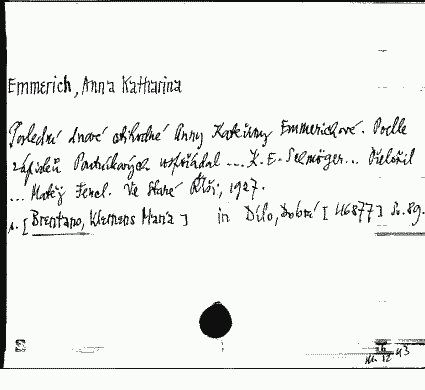 Emmerich, Anna Katharina
Poslední dnové ctihodné Anny Kateřiny Emmerichové. Podle
zápisků Brentánových uspořádal ... K. E. Schmöger... Přeložil
... Matěj Fencl. Ve Staré Říši, 1927.
[Brentano, Klemens Maria] in Dílo, Dobré [U6877] Sv. 89.